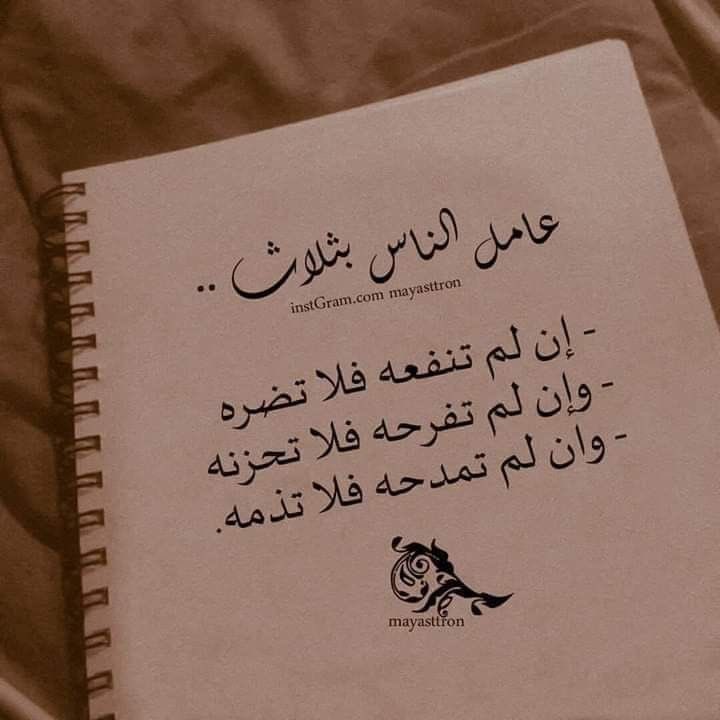 عامل الناس بثلاث ..
instGram.com mayasttron
- إن لم تنفعه فلا تضره
- وإن لم تفرحه فلا تحزنه
- وان لم تمدحه فلا تذمه.
mayasttron